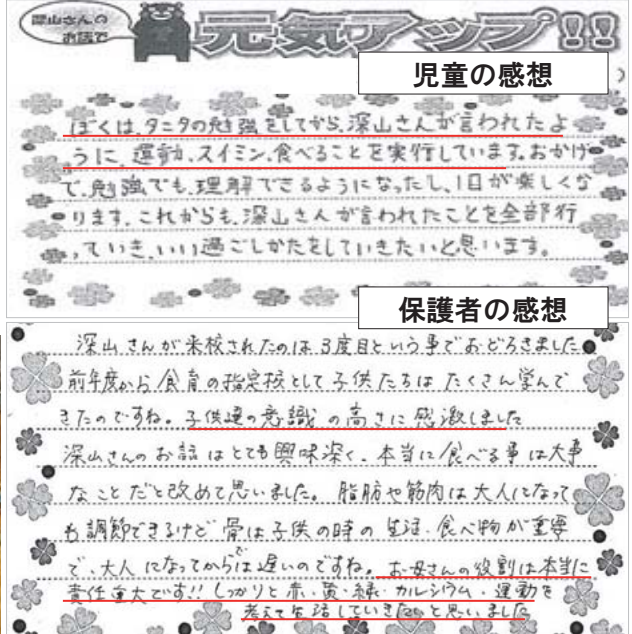 深山さんの
お話で
元気アップ!!
児童の感想
ぼくは、タニタの勉強をしてから、深山さんが言われたよ
うに、運動、スイミン、食べることを実行しています。おかげ
で、勉強でも、理解できるようになったし、1日が楽しくな
ります。これからも、深山さんが言われたことを全部行
っていき、いい過ごしかたをしていきたいと思います。
保護者の感想
深山さんが来校されたのは3度目という事でおどろきました
前年度から食育の指定校として子供たちはたくさん学んで
きたのですね。子供達の意識の高さに感激しました
深山さんのお話はとても興味深く、本当に食べる事は大事
なことだと改めて思いました。脂肪や筋肉は大人になって
も調節できるけど骨は子供の時の生活・食べ物が重要
で、大人になってからでは遅いのですね。お母さんの役割は本当に
責任重大です!!しっかりと赤・黄・緑・カルシウム・運動を
考えて生活していきたいと思いました